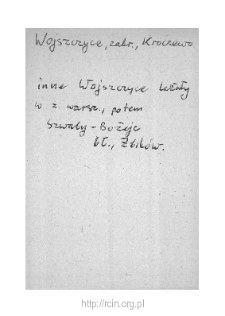 Wojszczyce, zakr., Kroczewo
inne Wojszczyce leżały
w z. warsz., potem
Szwały-Bożeje
bł., Żbików.
http://rcin.org.pl